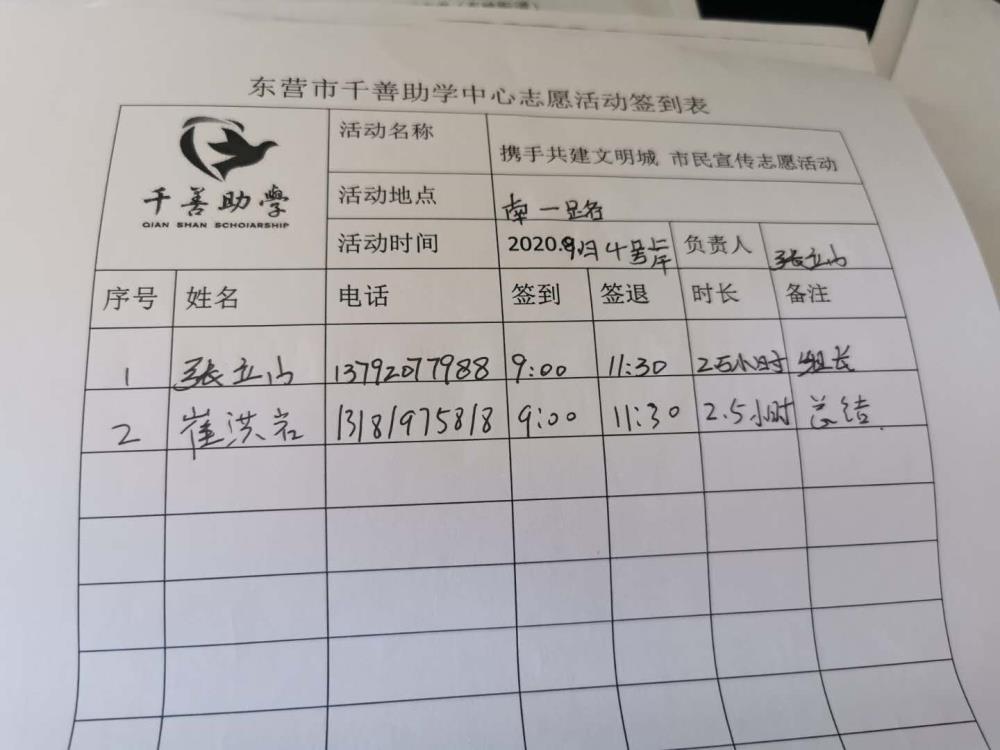 东营市千善助学中心志愿活动签到表
千善助學
QIAN SHAN SCHOIARSHIP
活动名称 携手共建文明城 市民宣传志愿活动
活动地点 南一路
活动时间 2020.9月4号上午 负责人 张立山
序号 姓名 电话 签到 签退 时长 备注
1 张立山 13792077988 9:00 11:30 2.5小时 组长
2 崔洪岩 13181975818 9:00 11:30 2.5小时 总结